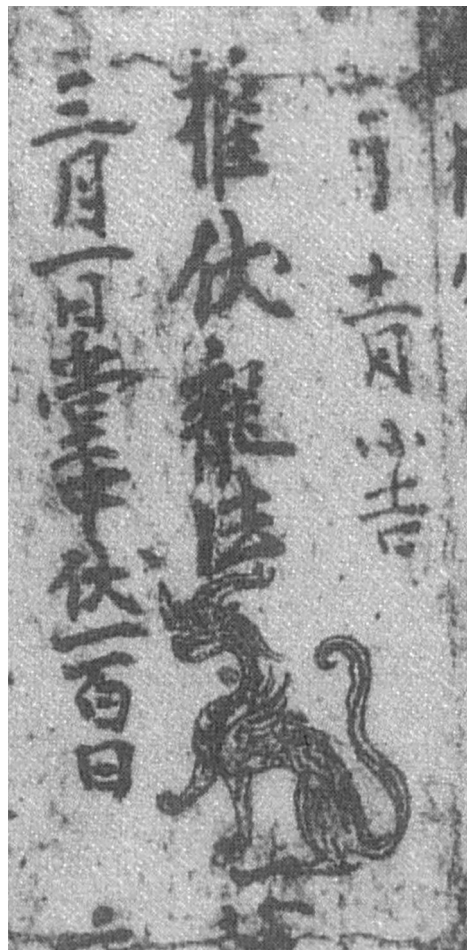 十二月 小吉
推伏龍法
三月一日堂中伏一百日